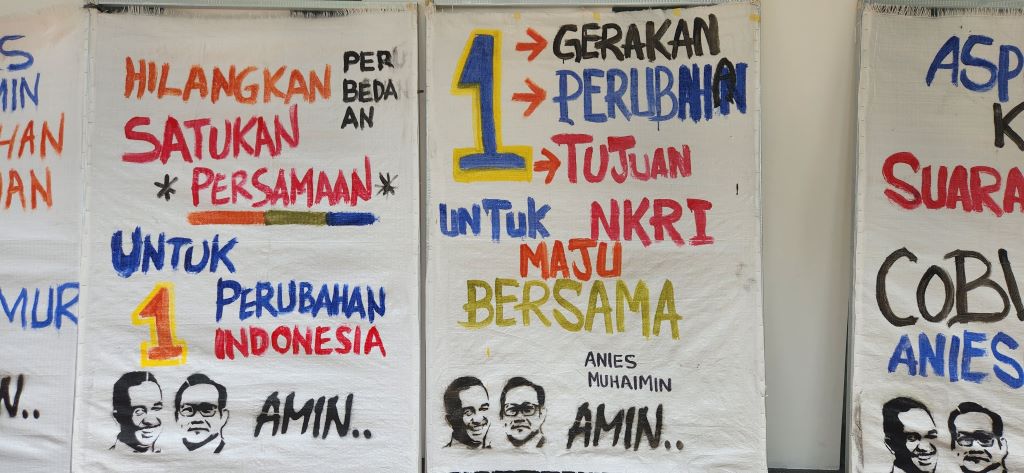 HILANGKAN
PERBEDAAN
SATUKAN
* PERSAMAAN *
UNTUK
1 PERUBAHAN
INDONESIA
AMIN..
1
GERAKAN
PERUBAHAN
TUJUAN
UNTUK NKRI
MAJU
BERSAMA
ANIES
MUHAIMIN
AMIN..
SUARA
ANIES